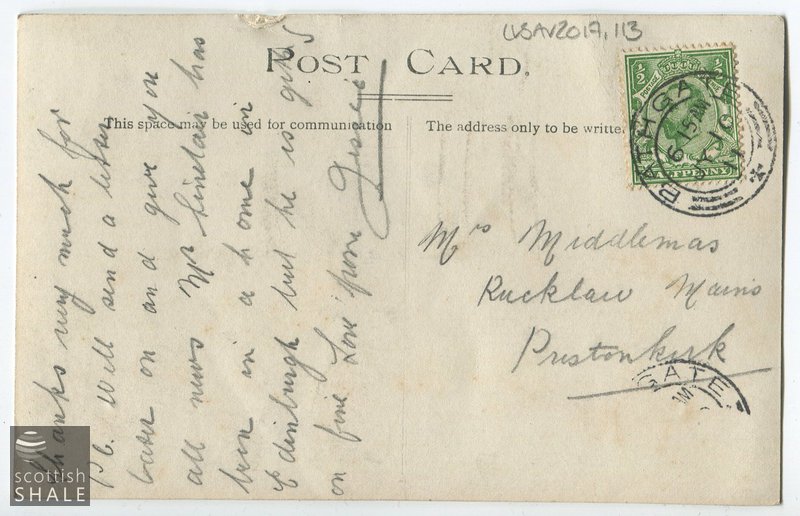 LVSAV2017.113
POST CARD.
This space may be used for communication
The address only to be writte
Thanks very much for
P.C. Will send a letter
later on and give you
all news Mr Sinclair has
been in a home in
Edinburgh but he is getting
on fine Love from Jessie
Mrs Middlemas
Rucklaw Mains
Prestonkirk
BATHGATE
6 15 PM
JY 10
HALFPENNY
GATE
scottish
SHALE